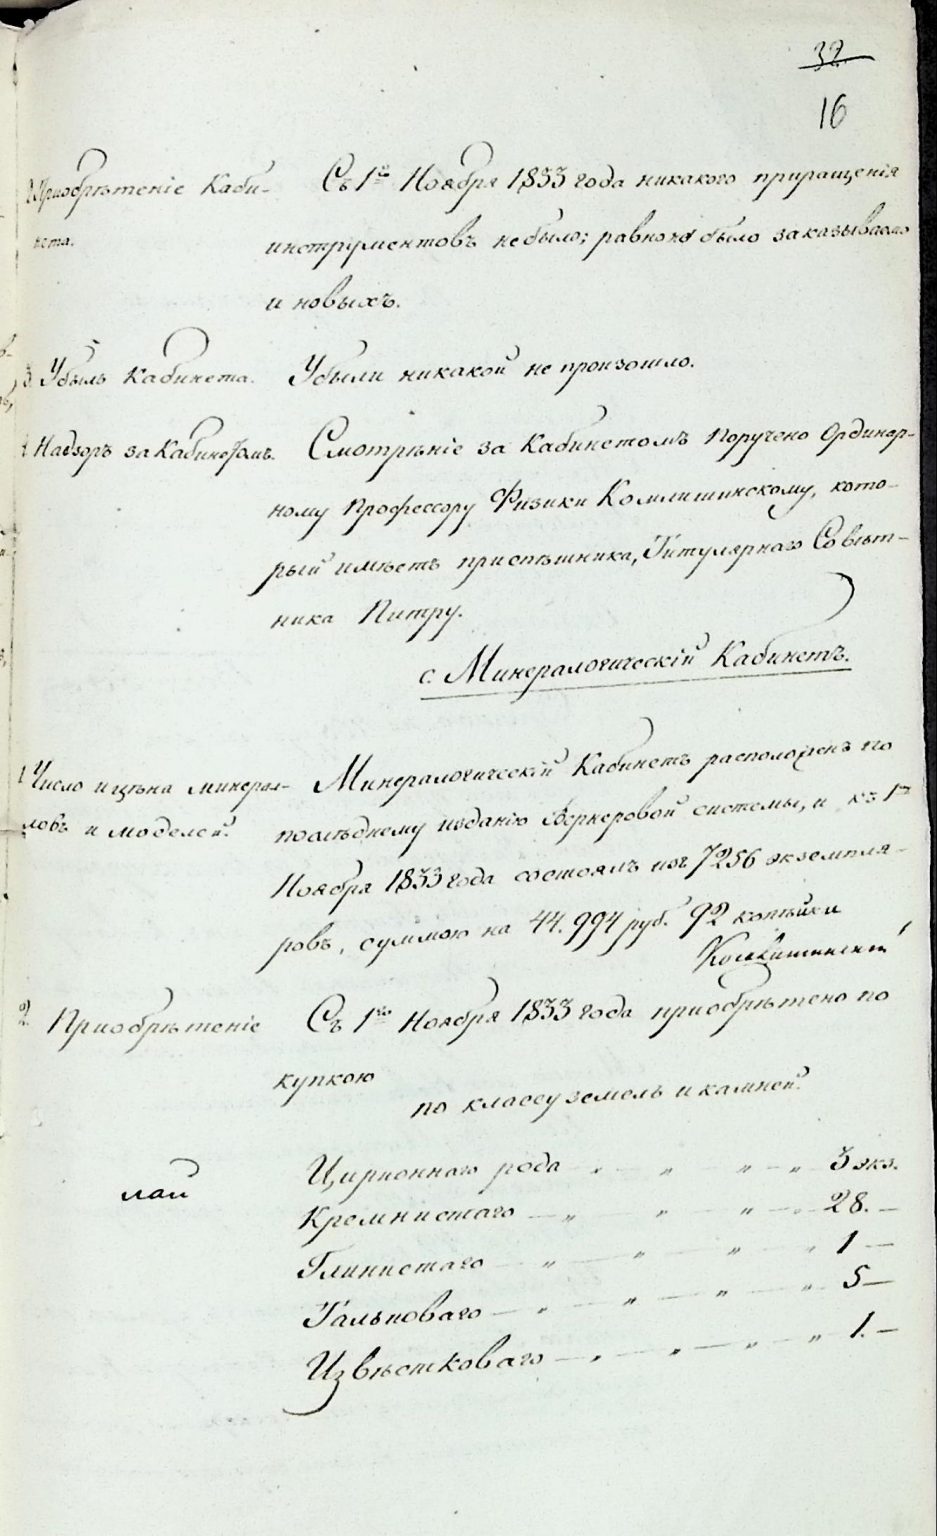 32
16
2. Приобрѣтеніе Каби-
нета.
Съ 1го Ноября 1833 года никакого приращенія
инструментовъ не было; равно не было заказываемо
и новыхъ.
3. Убыль Кабинета.
Убыли никакой не произошло.
4. Надзоръ за Кабинетомъ.
Смотрѣніе за Кабинетомъ поручено Ординар-
ному Профессору Физики Комлишинскому, кото-
рый имѣетъ приспѣшника, Титулярнаго Совѣт-
ника Питру.
с. Минералогическій Кабинетъ.
1. Число и цѣна минера-
ловъ и моделей.
Минералогическій Кабинетъ расположенъ по
послѣднему изданію Вернеровой системы, и къ 1му
Ноября 1833 года состоялъ изъ 7256 экземпля-
ровъ, суммою на 44.994 руб. 92 копѣйки
Комлишинскій
2. Приобрѣтеніе
Съ 1го Ноября 1833 года приобрѣтено по
купкою
по классу земель и камней.
Цирконнаго рода — „ „ „ — „ 3 экз.
Кремнистаго — „ — „ — „ — „ 28. —
Глинистаго — „ — „ — „ — „ 1 —
Тальковаго — „ — „ — „ — „ 5 —
Извѣстковаго — „ — „ — „ — „ 1. —